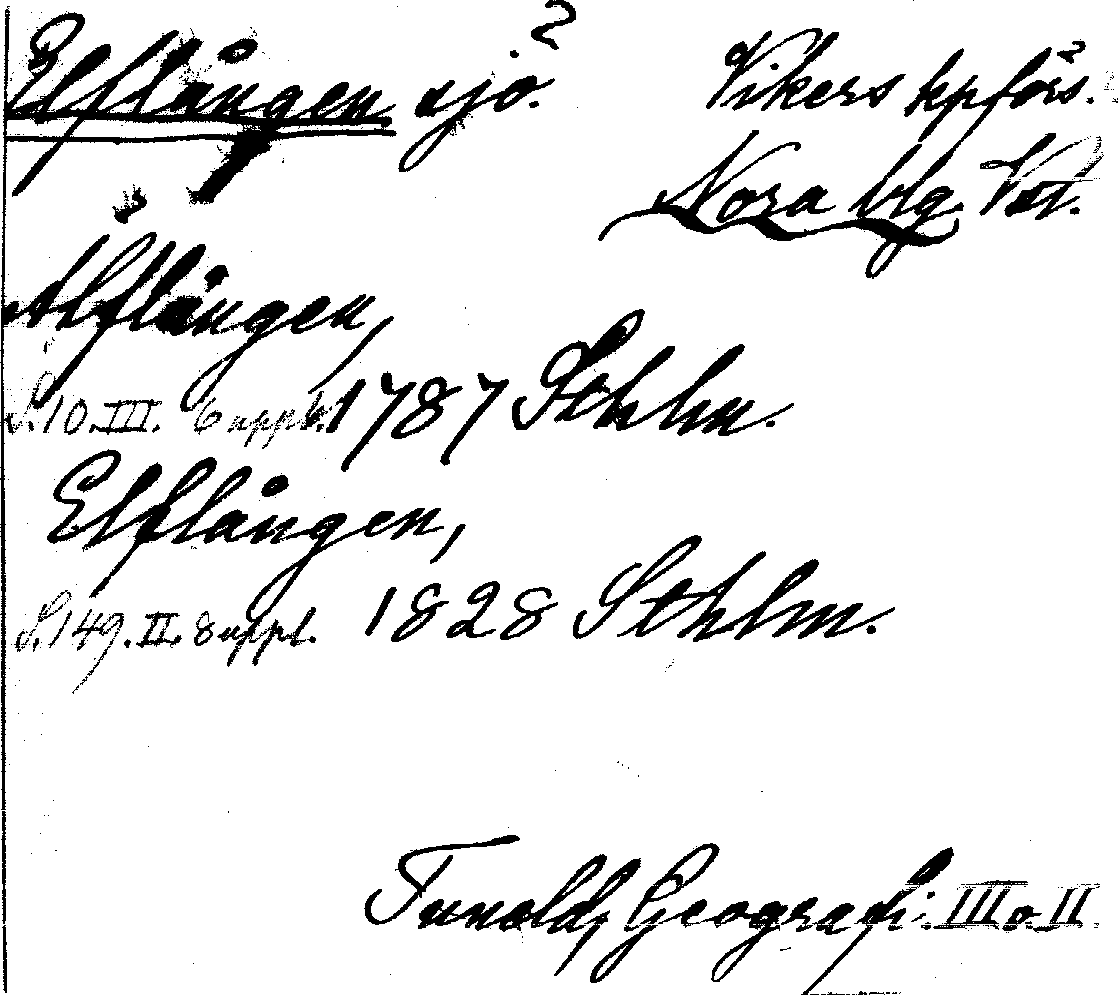 Elflången sjö.
Vikers kpförs.
Nora blg. Vstl.
Älflången,
S.10.III. 6 uppl. 1787 Sthlm.
Elflången,
S.149.II. 8 uppl. 1828 Sthlm.
Tunelds Geografi. III o. II